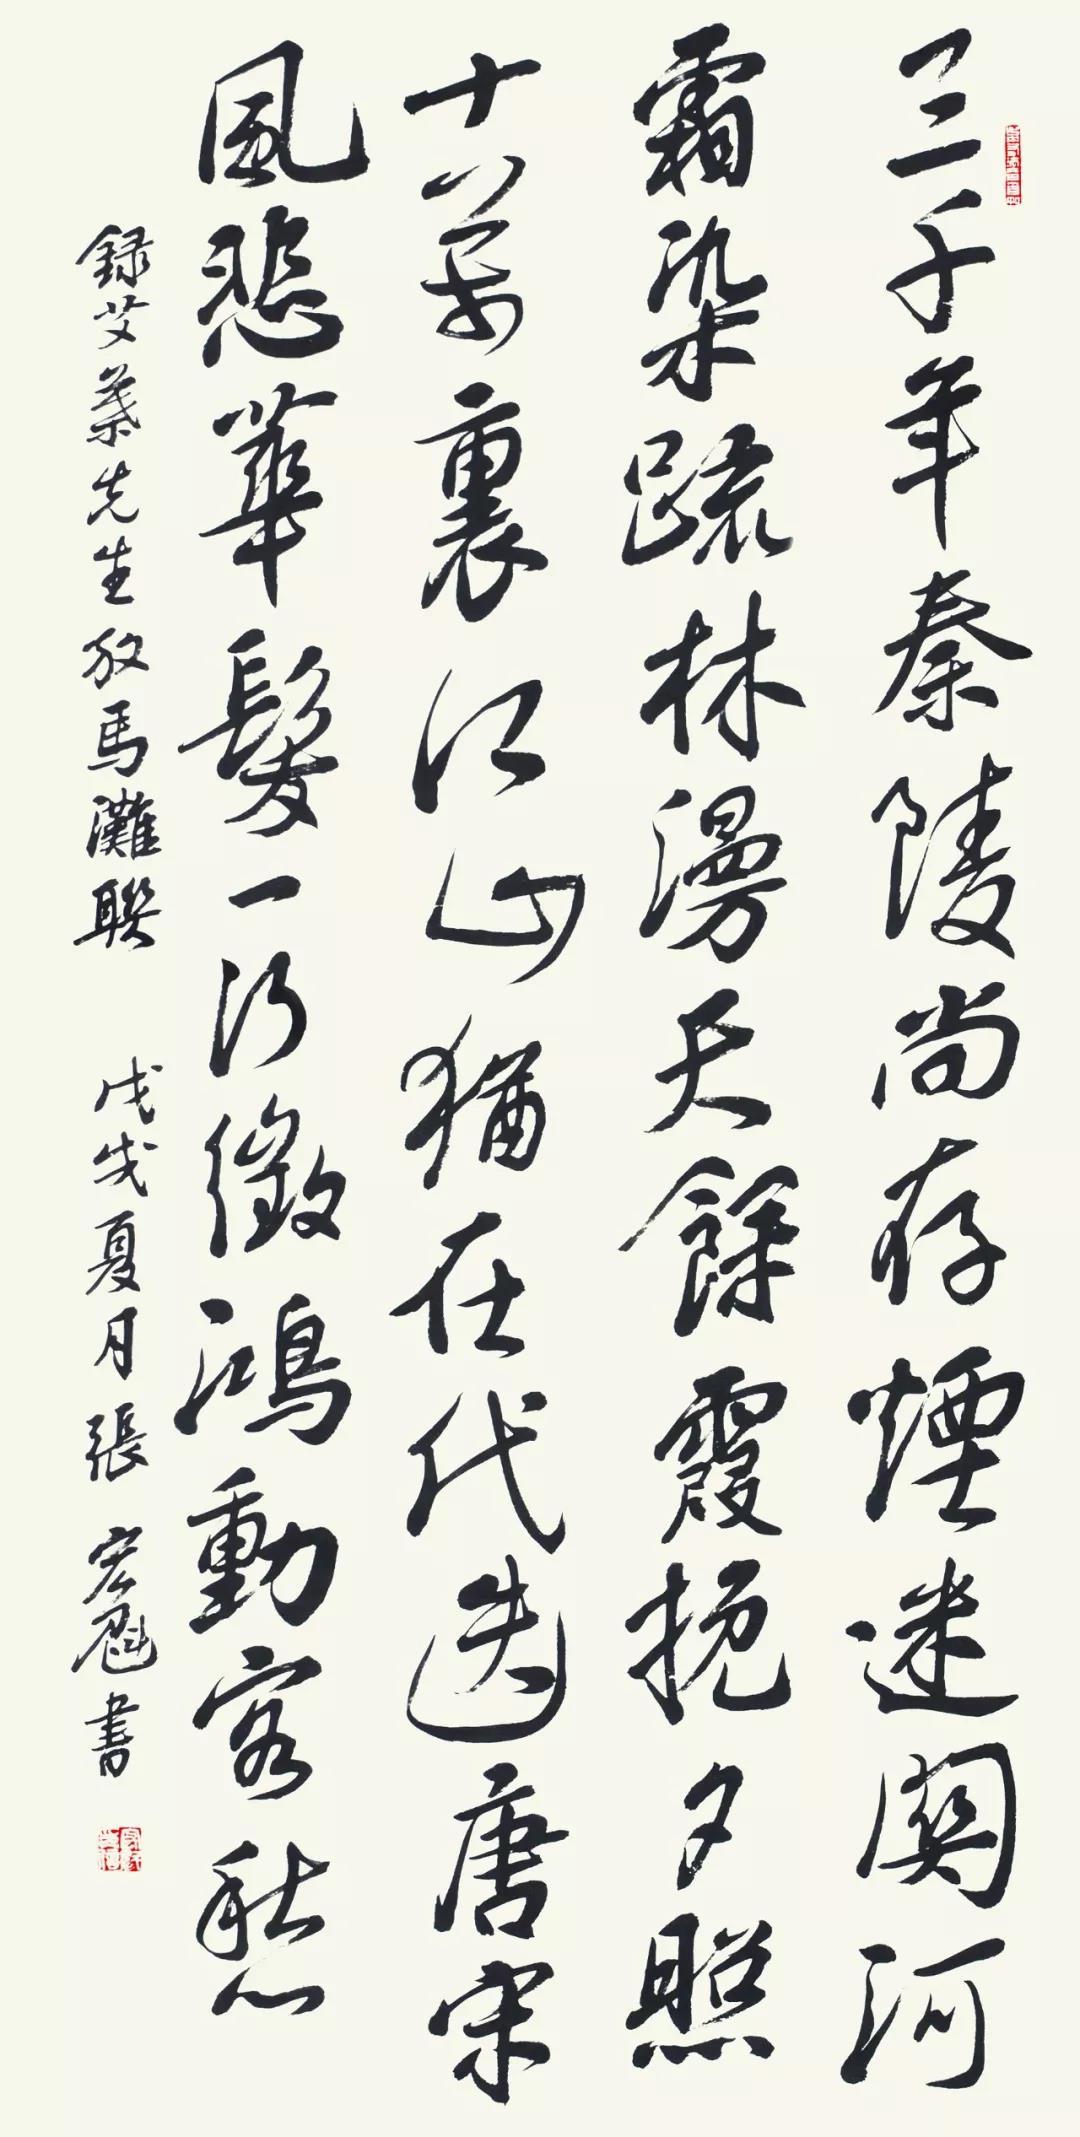 三千年秦陵尚存煙迷関河
霜染疏林漫天餘霞挽夕照
十万里江山猶在代迭唐宋
風悲華髮一行徵鴻動客愁
録艾葉先生放馬灘聯 戊戌夏月張宏魁書